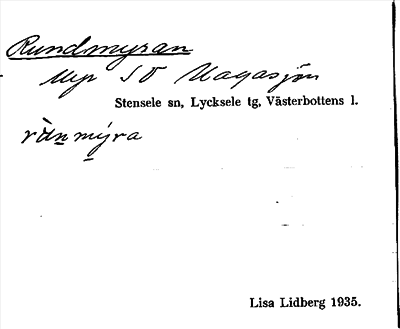 Rundmyran
Myr SO Uagasjön
Stensele sn, Lycksele tg, Västerbottens l.
rànmýra
Lisa Lidberg 1935.